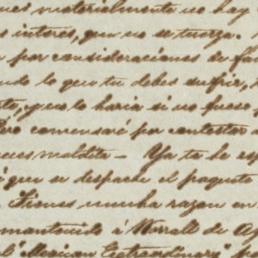 materialmente no hay
interes, que no se tuerza.
por consideraciones de fa
lo que tu debes sufrir,
to, y que lo haria si no fuese
Pero comensaré por contestar
maldita - Ya te he es
que se despache el paquete
Tienes mucha razon en
mantenido á Worrall de Ag
"Mexican Extraordinary"